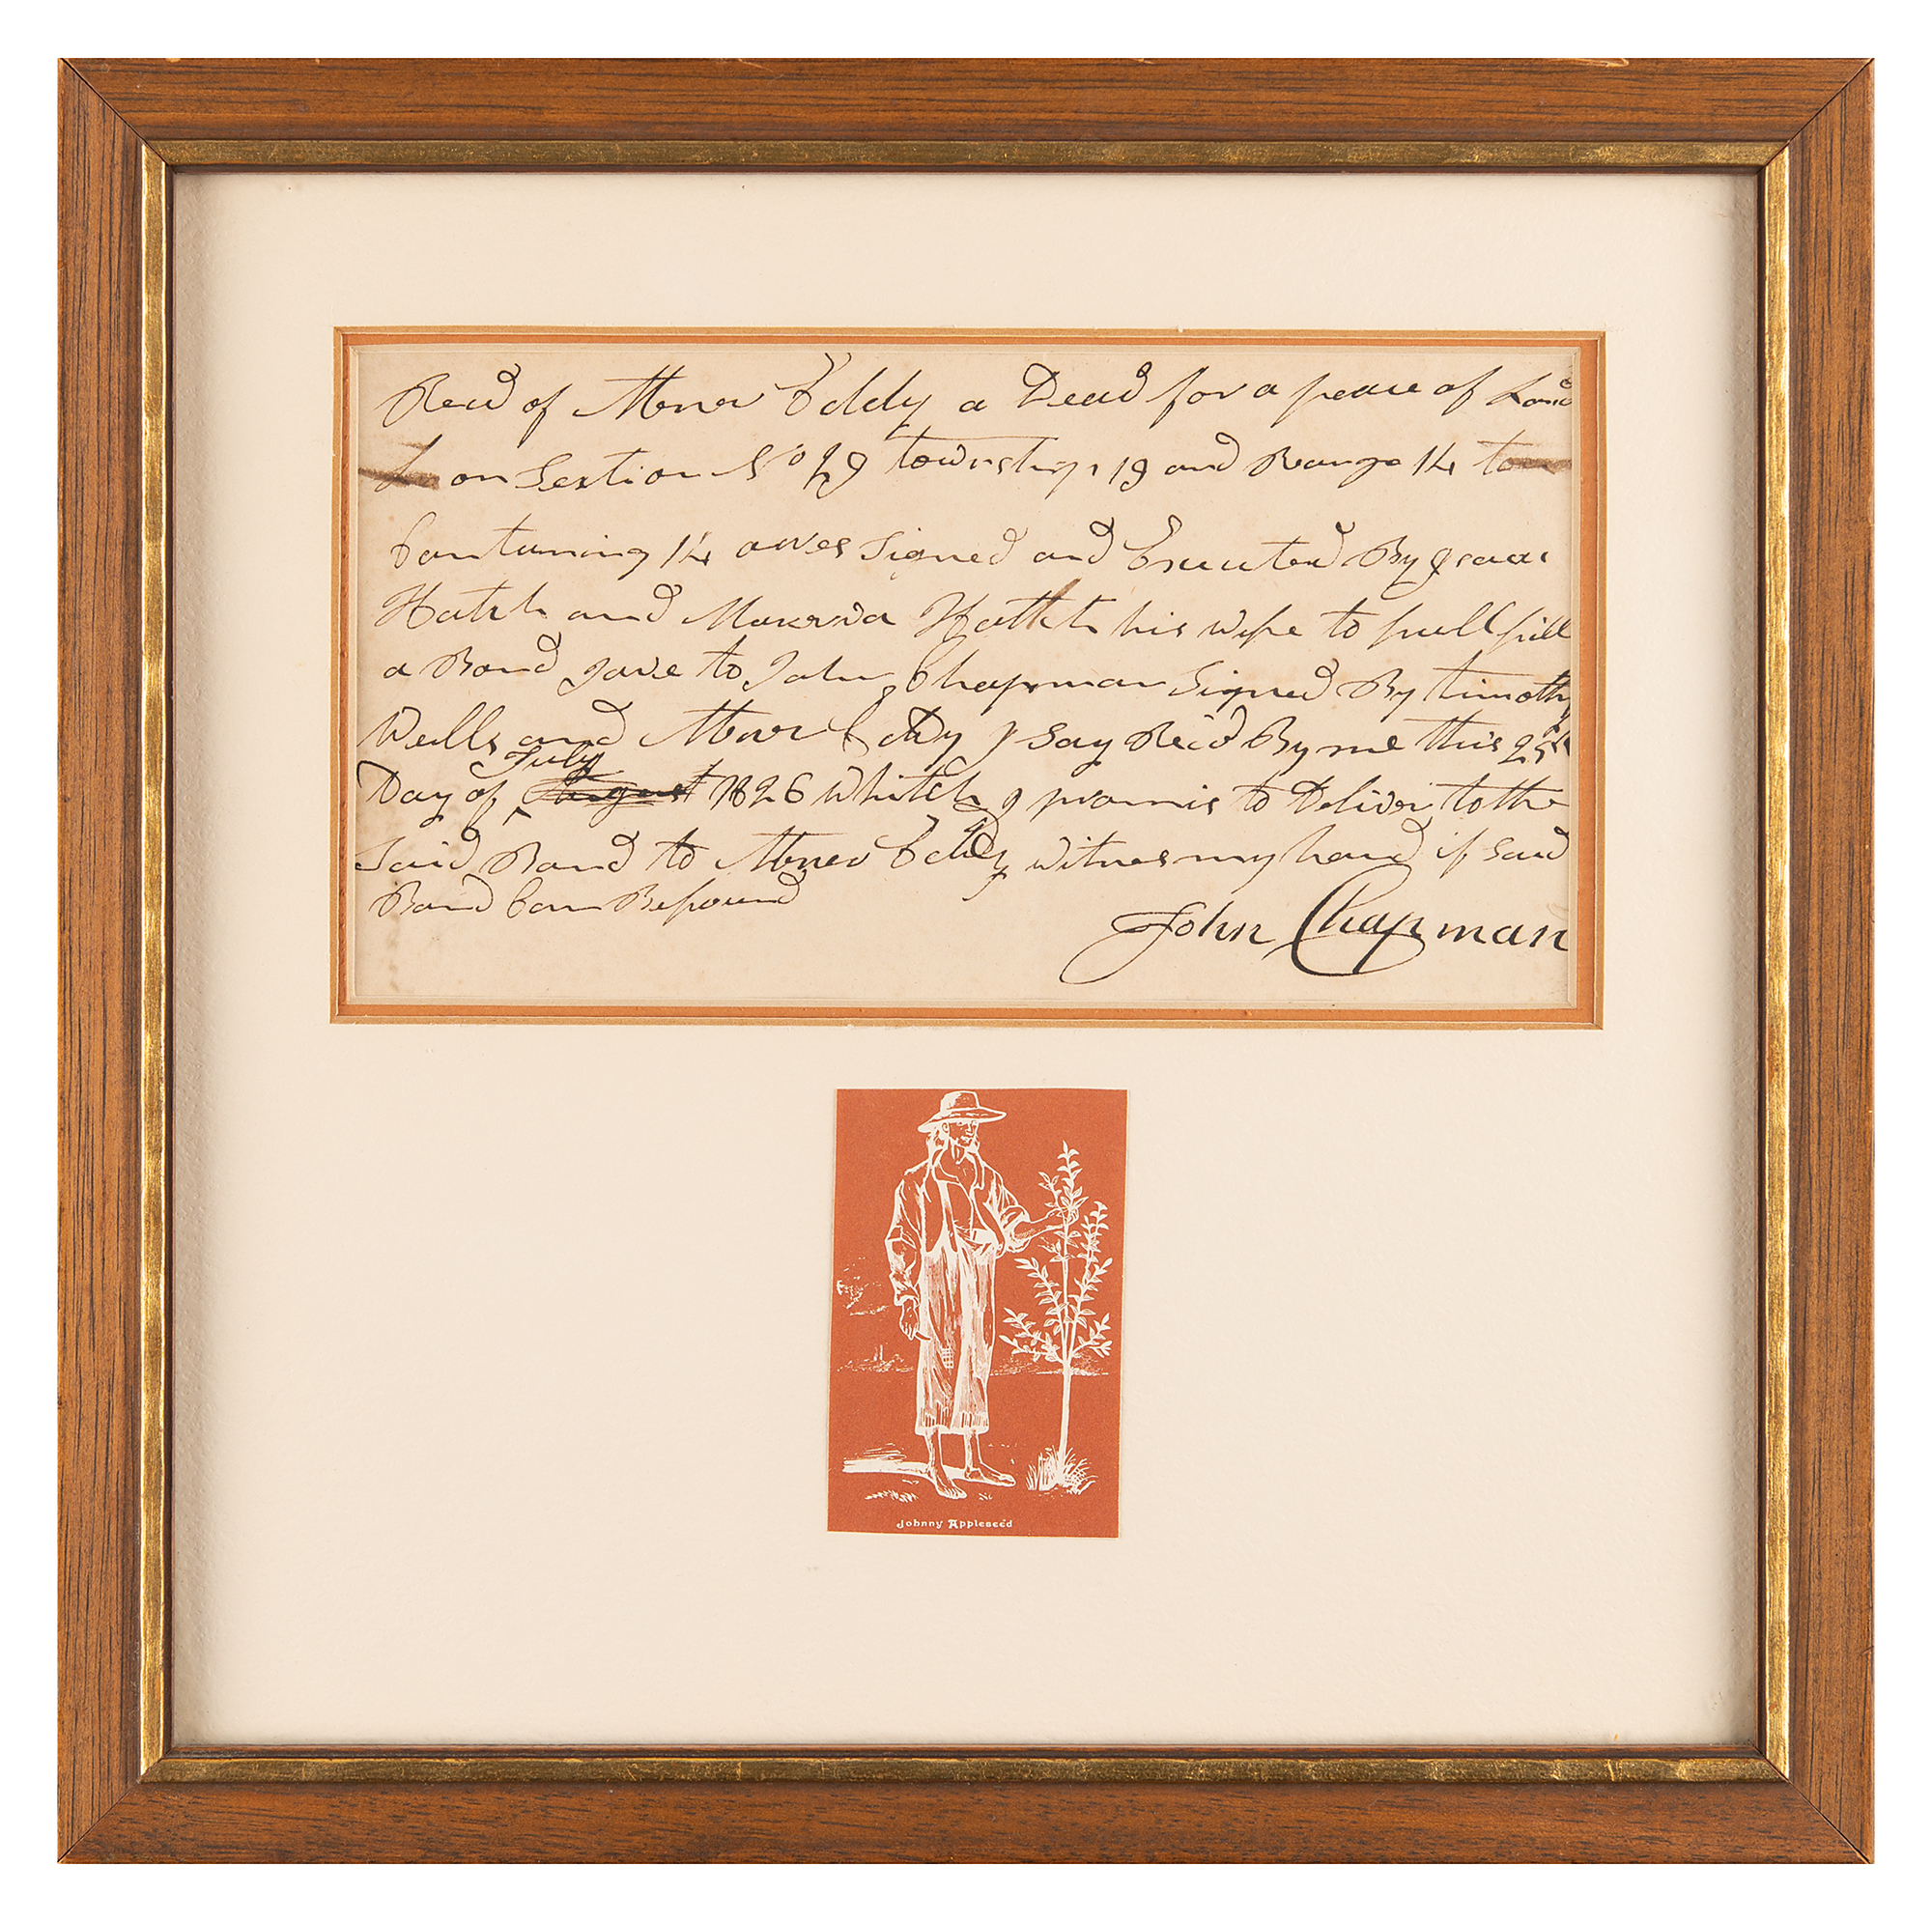 Recd of Abner Eddy a Dead for a peace of Land
on Section No 29 township 19 and Range 14
Contuning 14 acres Signed and Executed By Isaac
Hatch and his wife to full fill
a Bond gave to John Chapman Signed By timothy
Wells and Abner Eddy I say Recd By me this 25th
July
Day of August 1826 Whitch I promis to Deliver to the
Said Bond to Abner Eddy witnes my hand if Said
Bond Can Be found
John Chapman
Johnny Appleseed